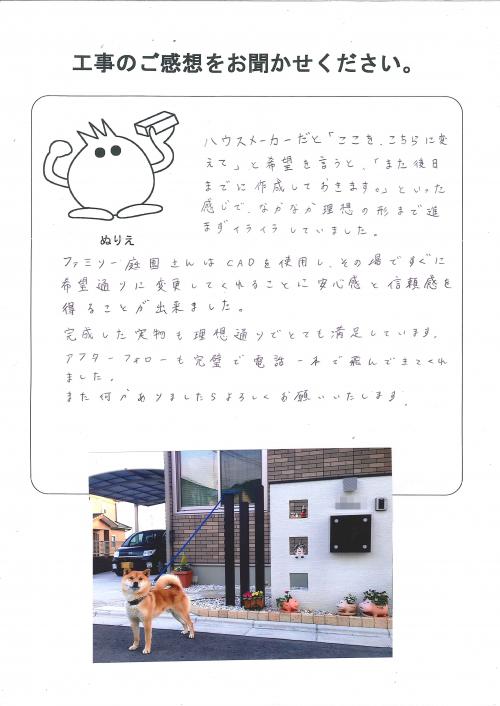 工事のご感想をお聞かせください。
ハウスメーカーだと「ここを、こちらに変
えて」と希望を言うと、「また後日
までに作成しておきます。」といった
感じで、なかなか理想の形まで進
まずイライラしていました。
ぬりえ
ファミリー庭園さんはCADを使用し、その場ですぐに
希望通りに変更してくれることに安心感と信頼感を
得ることが出来ました。
完成した実物も理想通りでとても満足しています。
アフターフォローも完璧で電話一本で飛んできてくれ
ました。
また何かありましたらよろしくお願いいたします。